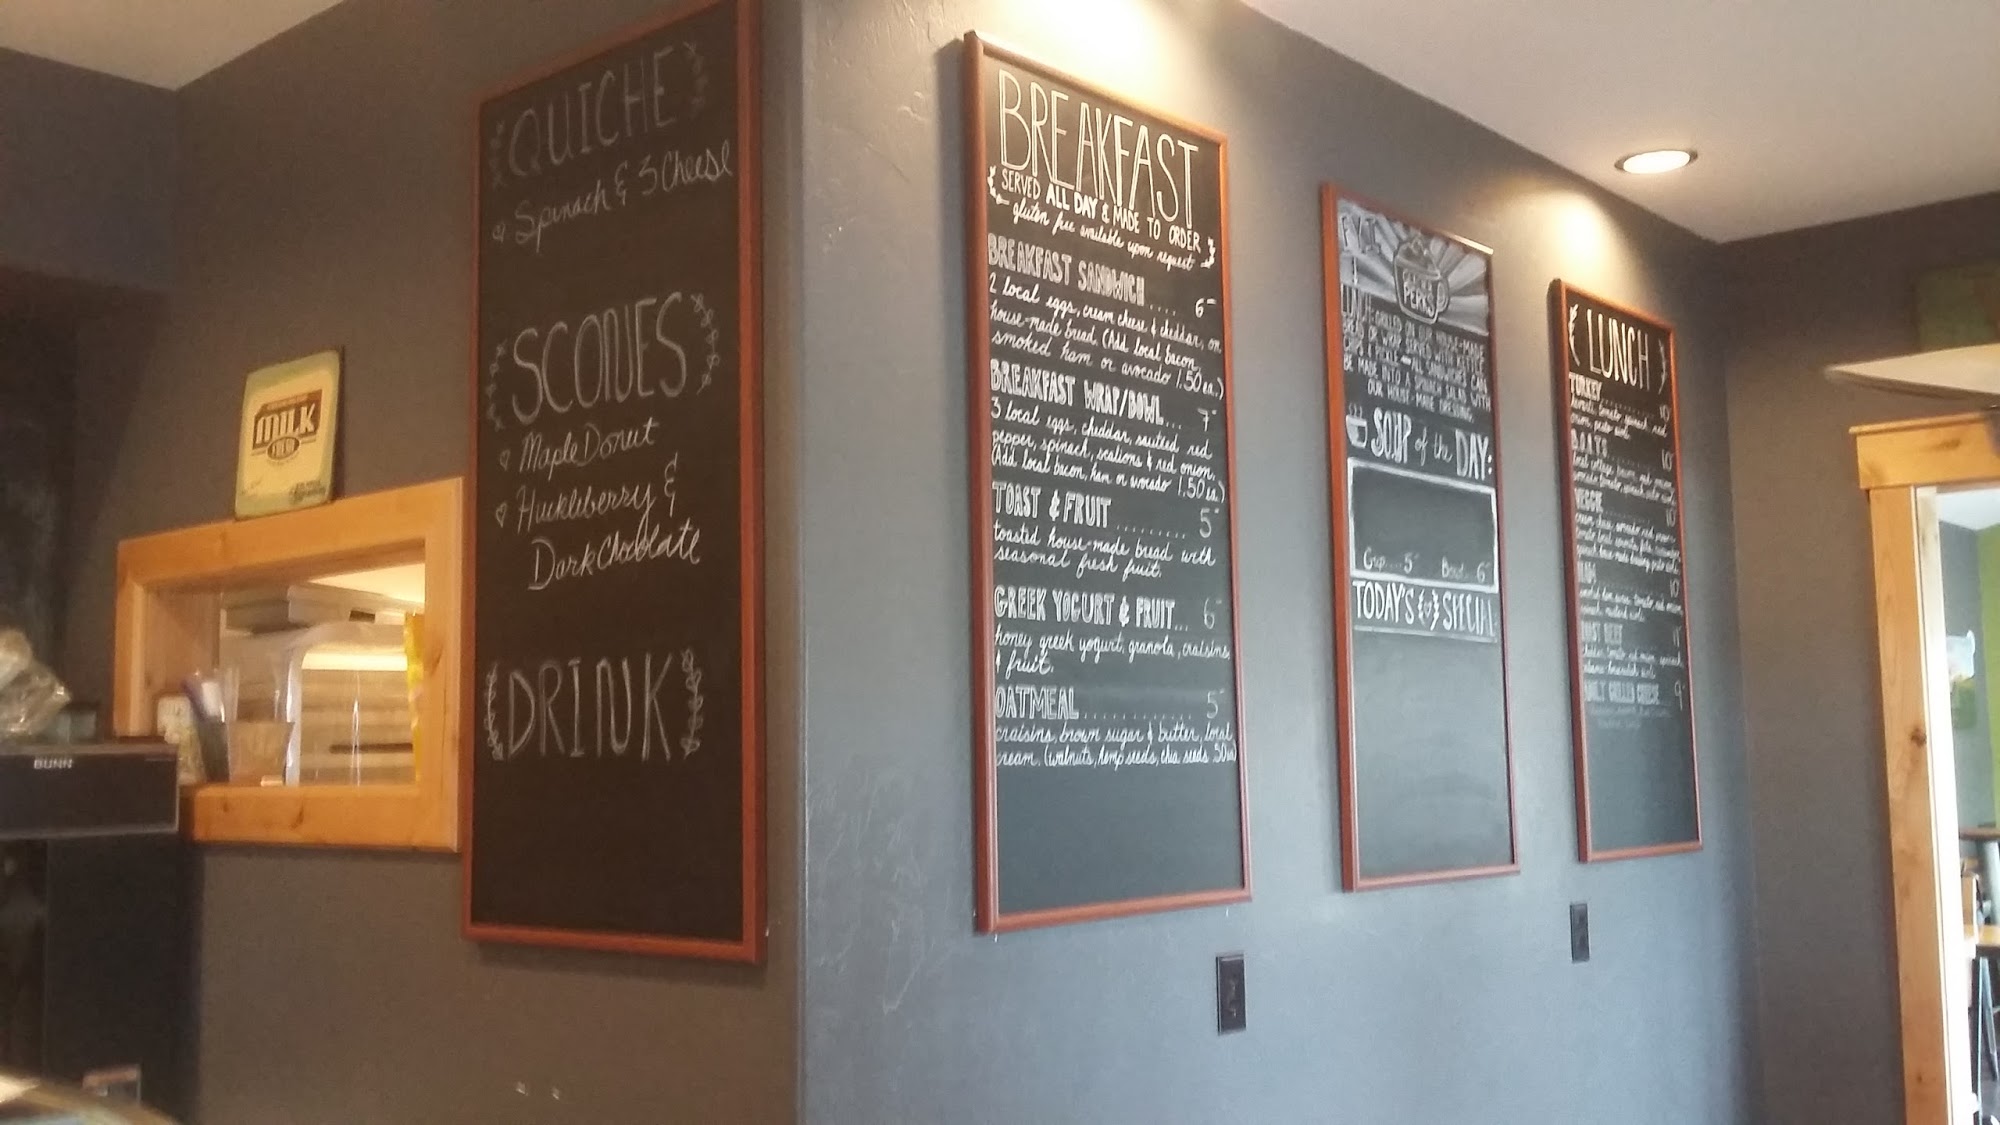 QUICHE
Spinach & 3 Cheese
SCONES
Maple Donut
Huckleberry &
Dark Chocolate
DRINK
MILK
BUNN
BREAKFAST
SERVED ALL DAY & MADE TO ORDER
gluten free available upon request
BREAKFAST SANDWICH.... 6-
2 local eggs, cream cheese & cheddar, on
house-made bread. (Add local bacon,
smoked ham or avocado 1.50 ea.)
BREAKFAST WRAP/BOWL... 7-
3 local eggs, cheddar, sautéed red
pepper, spinach, scallions & red onion,
(Add local bacon, ham or avocado 1.50 ea)
TOAST & FRUIT ........ 5-
toasted house-made bread with
seasonal fresh fruit.
GREEK YOGURT & FRUIT... 6-
honey greek yogurt, granola, craisins,
& fruit.
OATMEAL .......... 5-
craisins, brown sugar & butter, local
cream. (walnuts, hemp seeds, chia seeds .50 ea)
PERKS
LUNCH: GRILLED ON OUR HOUSE-MADE
BREAD OR WRAP SERVED WITH KETTLE
CHIPS & PICKLE - ALL SANDWICHES CAN
BE MADE INTO A SPINACH SALAD WITH
OUR HOUSE-MADE DRESSING.
SOUP of the DAY:
Cup... 5- Bowl.. 6-
TODAY'S SPECIAL
LUNCH
TURKEY 10-
tomato, spinach, red
onion, pesto aioli.
10-
VEGGIE 10-
HAM 10-
ROAST BEEF
ADULT GRILLED CHEESE 9-